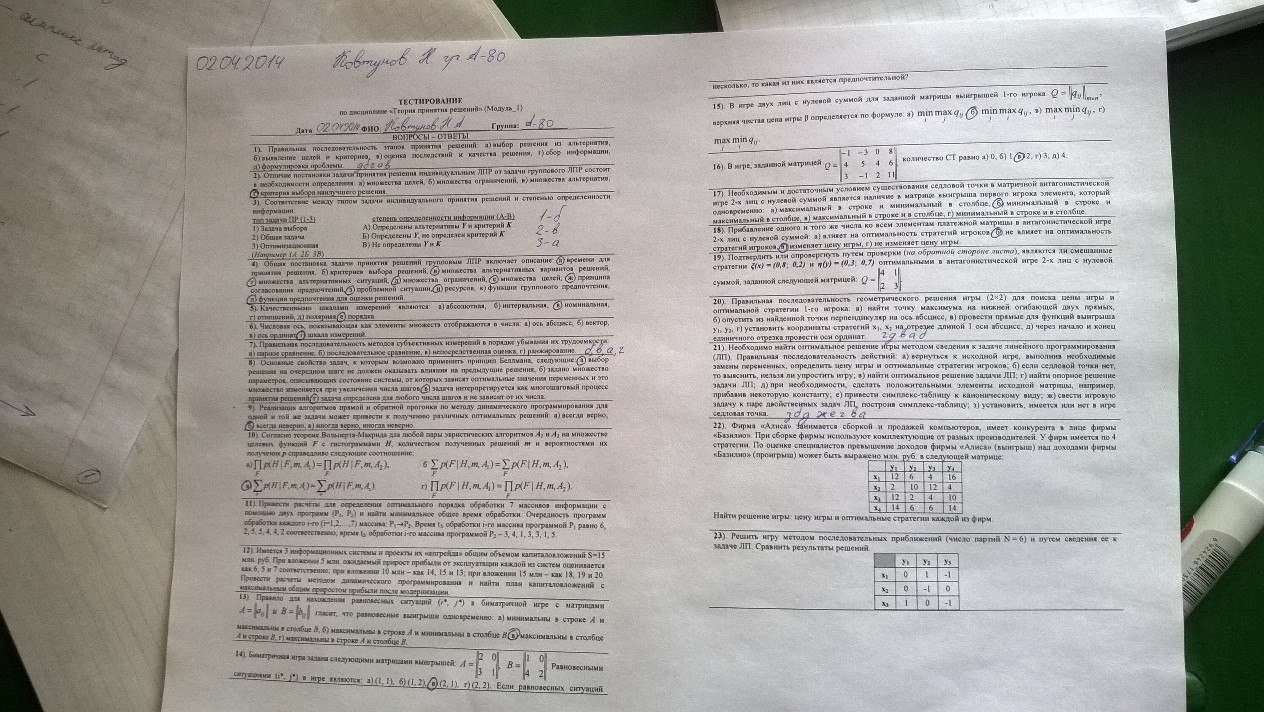 02.04.2014 Ковтунов Н гр А-80
ТЕСТИРОВАНИЕ
по дисциплине «Теория принятия решений» (Модуль_1)
Дата 02.04.2014 ФИО Ковтунов Н А Группа: А-80
ВОПРОСЫ – ОТВЕТЫ
1). Правильная последовательность этапов принятия решений: а) выбор решения из альтернатив,
б) выявление целей и критериев, в) оценка последствий и качества решения, г) сбор информации,
д) формулировка проблемы.
2). Отличие постановки задачи принятия решения индивидуальным ЛПР от задачи группового ЛПР состоит
в необходимости определения: а) множества целей, б) множества ограничений, в) множества альтернатив,
г) критерия выбора наилучшего решения.
3). Соответствие между типом задачи индивидуального принятия решений и степенью определенности
информации:
тип задачи ПР (1-3) степень определенности информации (А-В)
1) Задача выбора А) Определены альтернативы Y и критерий K 1-б
2) Общая задача Б) Определены Y, не определен критерий K 2-в
3) Оптимизационная В) Не определены Y и K 3-а
(Например 1А, 2Б, 3В)
4). Общая постановка задачи принятия решений групповым ЛПР включает описание: а) времени для
принятия решения, б) критериев выбора решений, в) множества альтернативных вариантов решений,
г) множества альтернативных ситуаций, д) множества ограничений, е) множества целей, ж) принципа
согласования предпочтений, з) проблемной ситуации, и) ресурсов, к) функции группового предпочтения,
л) функции предпочтения для оценки решений.
5). Качественными шкалами измерений являются: а) абсолютная, б) интервальная, в) номинальная,
г) отношений, д) полярная, е) порядка.
6). Числовая ось, показывающая как элементы множеств отображаются в числа: а) ось абсцисс, б) вектор,
в) ось ординат, г) шкала измерений.
7). Правильная последовательность методов субъективных измерений в порядке убывания их трудоемкости:
а) парное сравнение, б) последовательное сравнение, в) непосредственная оценка, г) ранжирование. б, в, а, г
8). Основные свойства задач, к которым возможно применить принцип Беллмана, следующие: а) выбор
решения на очередном шаге не должен оказывать влияния на предыдущие решения, б) задано множество
параметров, описывающих состояние системы, от которых зависят оптимальные значения переменных и это
множество изменяется при увеличении числа шагов, в) задача интерпретируется как многошаговый процесс
принятия решений, г) задача определена для любого числа шагов и не зависит от их числа.
9). Реализация алгоритмов прямой и обратной прогонки по методу динамического программирования для
одной и той же задачи может привести к получению различных оптимальных решений: а) всегда верно,
б) всегда неверно, в) иногда верно, иногда неверно.
10). Согласно теореме Вольперта-Макрида для любой пары эвристических алгоритмов A₁ и A₂ на множестве
целевых функций F с гистограммами H, количеством полученных решений m и вероятностями их
получения p справедливо следующее соотношение:
а) ∏p(H|F,m,A₁)=∏p(H|F,m,A₂), б ∑p(F|H,m,A₁)=∑p(F|H,m,A₂),
в) ∑p(H|F,m,A₁)=∑p(H|F,m,A₂) г) ∏p(F|H,m,A₁)=∏p(F|H,m,A₂).
11). Привести расчёты для определения оптимального порядка обработки 7 массивов информации с
помощью двух программ (P₁, P₂) и найти минимальное общее время обработки. Очередность программ
обработки каждого i-го (i=1,2,…,7) массива: P₁→P₂. Время t₁ᵢ обработки i-го массива программой P₁ равно 6,
2, 5, 5, 4, 4, 2 соответственно, время t₂ᵢ обработки i-го массива программой P₂ – 3, 4, 1, 3, 3, 1, 5.
12). Имеется 3 информационных системы и проекты их «апгрейда» общим объемом капиталовложений S=15
млн. руб. При вложении 5 млн. ожидаемый прирост прибыли от эксплуатации каждой из систем оценивается
как 6, 5 и 7 соответственно; при вложении 10 млн – как 14, 15 и 13; при вложении 15 млн – как 18, 19 и 20.
Провести расчеты методом динамического программирования и найти план капиталовложений с
максимальным общим приростом прибыли после модернизации.
13). Правило для нахождения равновесных ситуаций (i*, j*) в биматричной игре с матрицами
A = ‖aᵢⱼ‖ и B = ‖bᵢⱼ‖ гласит, что равновесные выигрыши одновременно: а) минимальны в строке A и
максимальны в столбце B, б) максимальны в строке A и минимальны в столбце B, в) максимальны в столбце
A и строке B, г) максимальны в строке A и столбце B.
14). Биматричная игра задана следующими матрицами выигрышей: A = |2 0| B = |1 0| Равновесными
|3 1| |4 2|
ситуациями (i*, j*) в игре являются: а) (1, 1), б) (1, 2), в) (2, 1), г) (2, 2). Если равновесных ситуаций
несколько, то какая из них является предпочтительной?
15). В игре двух лиц с нулевой суммой для заданной матрицы выигрышей 1-го игрока Q = ‖qᵢⱼ‖m×n,
верхняя чистая цена игры β определяется по формуле: а) min max qᵢⱼ, б) min max qᵢⱼ, в) max min qᵢⱼ, г)
max min qᵢⱼ.
16). В игре, заданной матрицей Q = |-1 -3 0 8| количество СТ равно а) 0, б) 1, в) 2, г) 3, д) 4.
|4 5 4 6|
|3 -1 2 11|
17). Необходимым и достаточным условием существования седловой точки в матричной антагонистической
игре 2-х лиц с нулевой суммой является наличие в матрице выигрыша первого игрока элемента, который
одновременно: а) максимальный в строке и минимальный в столбце, б) минимальный в строке и
максимальный в столбце, в) максимальный в строке и в столбце, г) минимальный в строке и в столбце.
18). Прибавление одного и того же числа ко всем элементам платежной матрицы в антагонистической игре
2-х лиц с нулевой суммой: а) влияет на оптимальность стратегий игроков, б) не влияет на оптимальность
стратегий игроков, в) изменяет цену игры, г) не изменяет цену игры.
19). Подтвердить или опровергнуть путем проверки (на обратной стороне листа), являются ли смешанные
стратегии ξ(x) = (0,8; 0,2) и η(y) = (0,3; 0,7) оптимальными в антагонистической игре 2-х лиц с нулевой
суммой, заданной следующей матрицей: Q = |4 1|
|2 3|
20). Правильная последовательность геометрического решения игры (2×2) для поиска цены игры и
оптимальной стратегии 1-го игрока: а) найти точку максимума на нижней огибающей двух прямых,
б) опустить из найденной точки перпендикуляр на ось абсцисс, в) провести прямые для функций выигрыша
y₁, y₂, г) установить координаты стратегий x₁, x₂ на отрезке длиной 1 оси абсцисс, д) через начало и конец
единичного отрезка провести оси ординат.
21). Необходимо найти оптимальное решение игры методом сведения к задаче линейного программирования
(ЛП). Правильная последовательность действий: а) вернуться к исходной игре, выполнив необходимые
замены переменных, определить цену игры и оптимальные стратегии игроков; б) если седловой точки нет,
то выяснить, нельзя ли упростить игру; в) найти оптимальное решение задачи ЛП; г) найти опорное решение
задачи ЛП; д) при необходимости, сделать положительными элементы исходной матрицы, например,
прибавив некоторую константу; е) привести симплекс-таблицу к каноническому виду; ж) свести игровую
задачу к паре двойственных задач ЛП, построив симплекс-таблицу; з) установить, имеется или нет в игре
седловая точка.
22). Фирма «Алиса» занимается сборкой и продажей компьютеров, имеет конкурента в лице фирмы
«Базилио». При сборке фирмы используют комплектующие от разных производителей. У фирм имеется по 4
стратегии. По оценке специалистов превышение доходов фирмы «Алиса» (выигрыш) над доходами фирмы
«Базилио» (проигрыш) может быть выражено млн. руб. в следующей матрице:
y₁ y₂ y₃ y₄
x₁ 12 6 4 16
x₂ 2 10 12 4
x₃ 12 2 4 10
x₄ 14 6 6 14
Найти решение игры: цену игры и оптимальные стратегии каждой из фирм.
23). Решить игру методом последовательных приближений (число партий N = 6) и путем сведения ее к
задаче ЛП. Сравнить результаты решений.
y₁ y₂ y₃
x₁ 0 1 -1
x₂ 0 -1 0
x₃ 1 0 -1